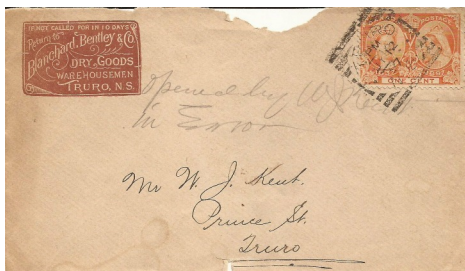 IF NOT CALLED FOR IN 10 DAYS
Return to
Blanchard, Bentley & Co
DRY GOODS
WAREHOUSEMEN
TRURO, N.S.
POSTAGE
ONE CENT
opened by
in Error
Mr W. J. Kent.
Prince St.
Truro